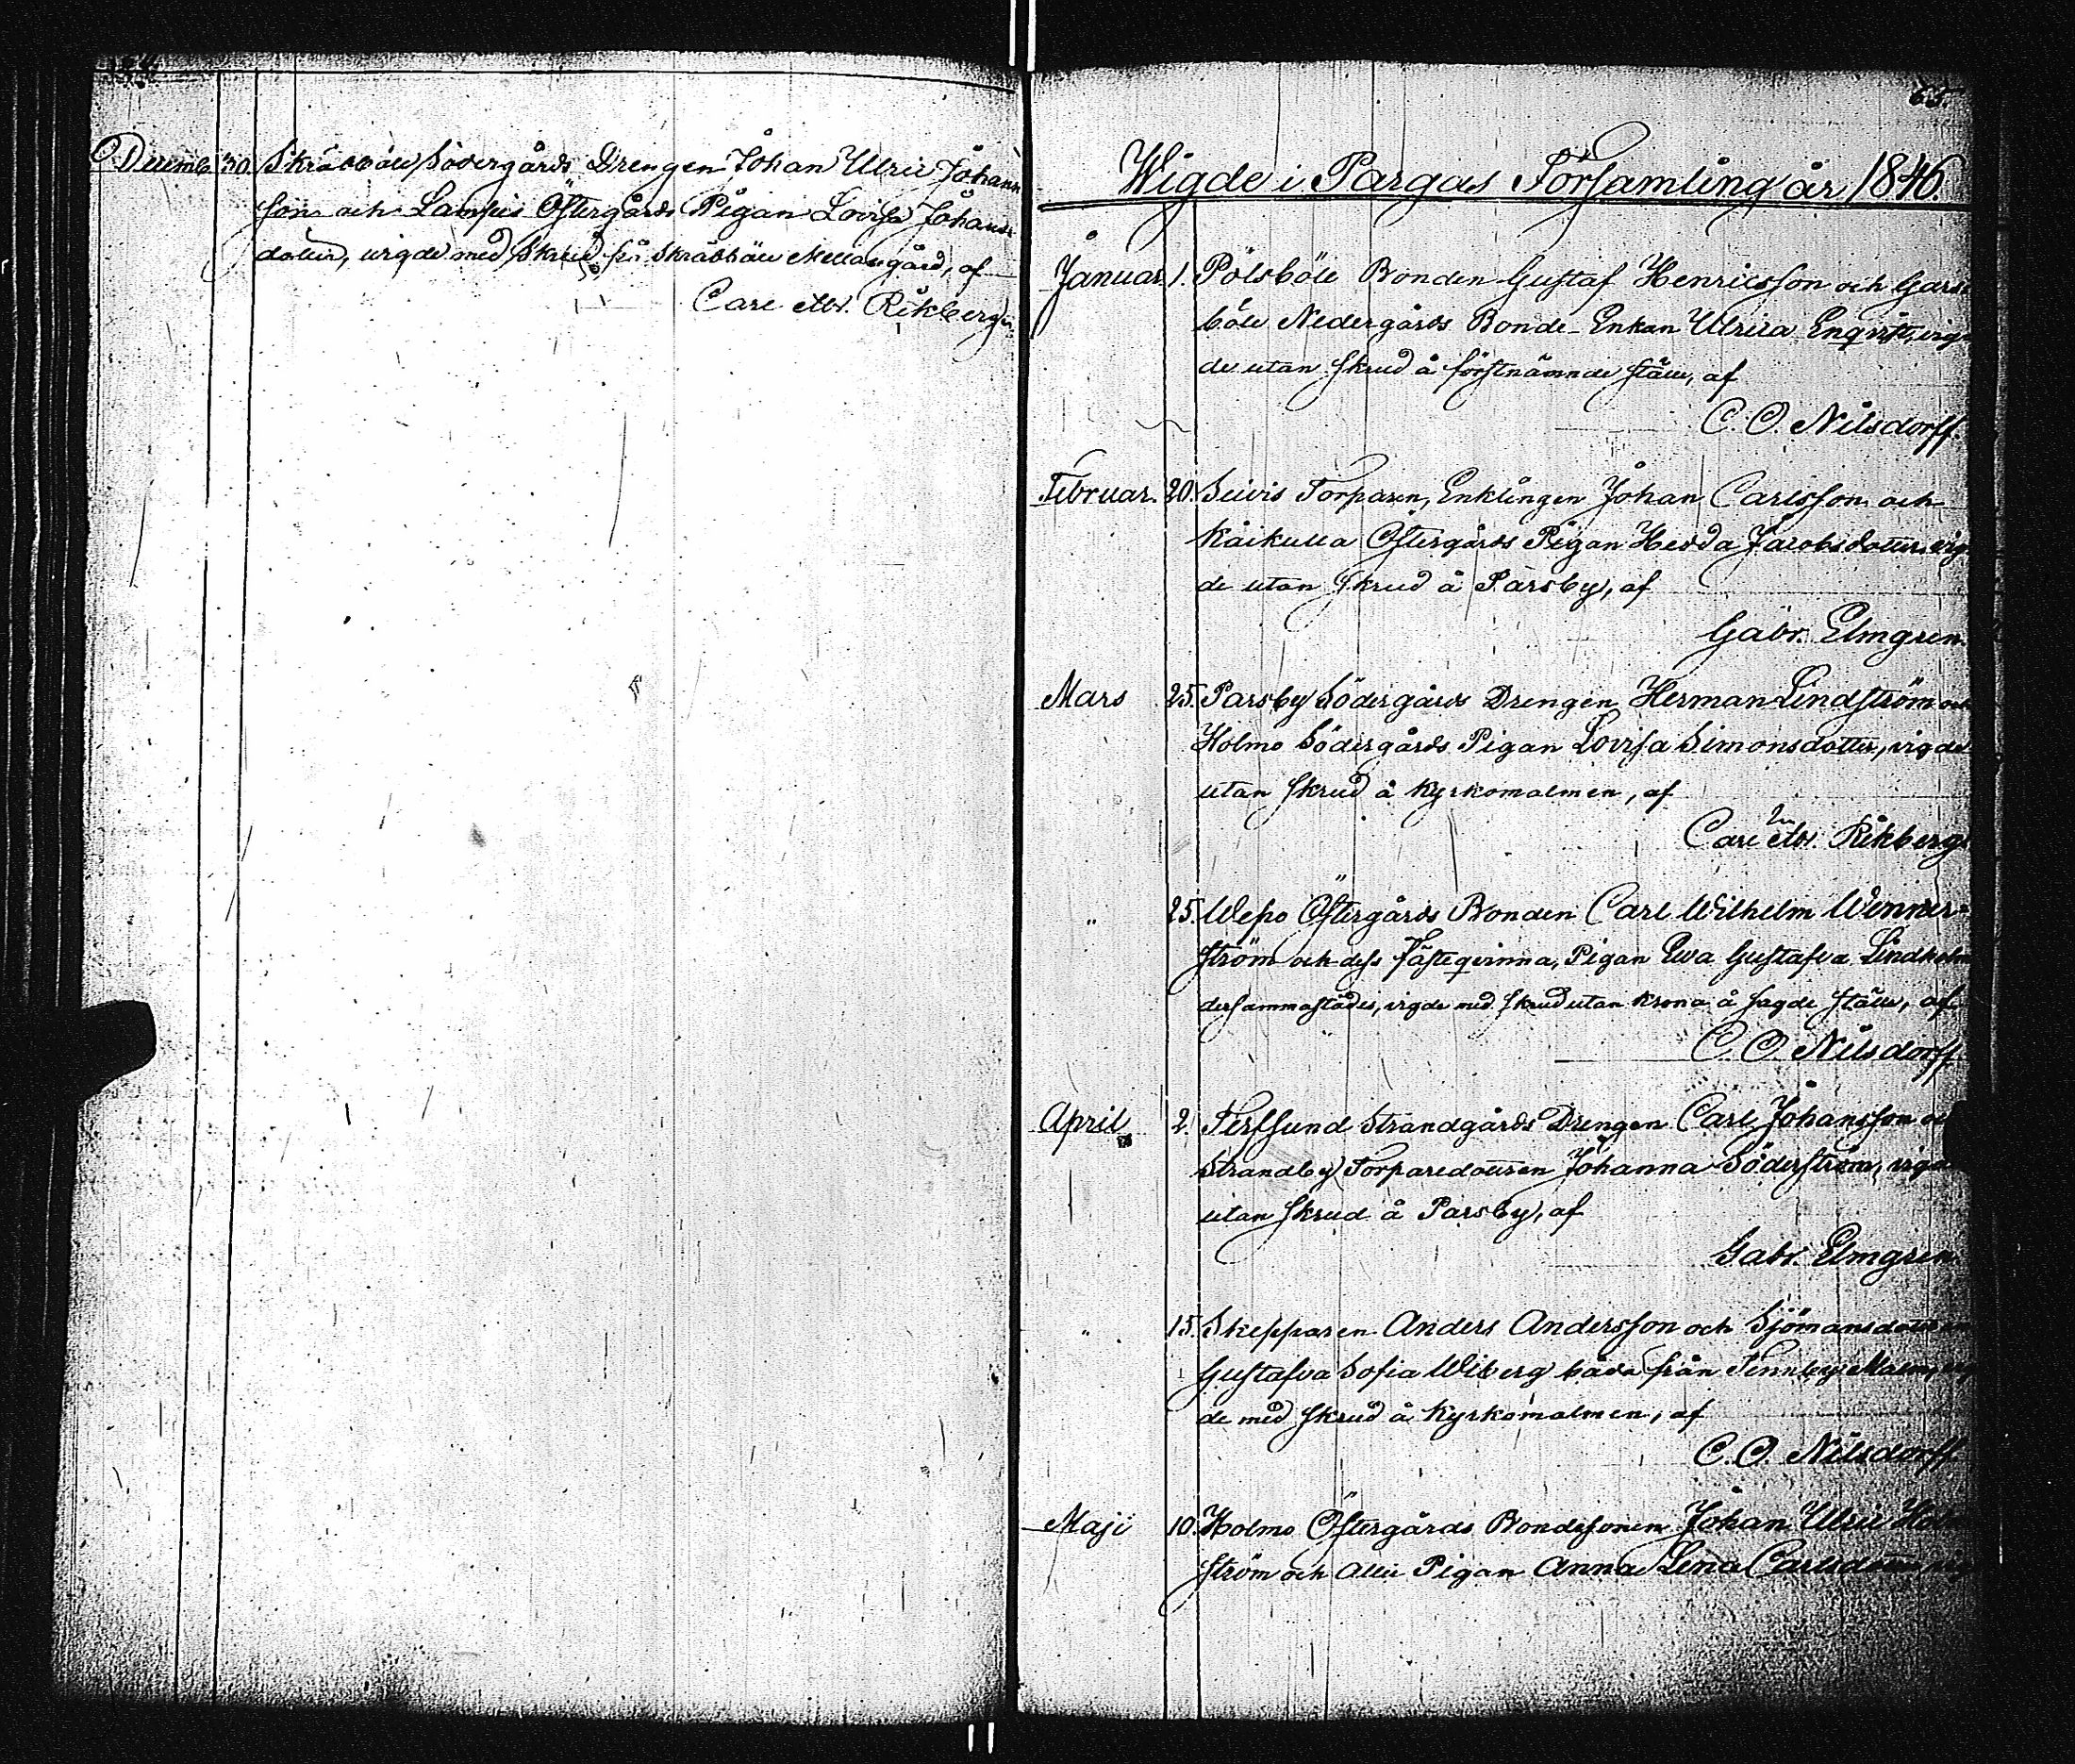 Decemb. 30. Skräbböle Södergårds Drengen Johan Ulric Johans
son och Lampis Östergårds Pigan Lovisa Johans
dotter, vigde med Skrud på Skräbböle Mellangård, af
Carl Rikberg
65.
Wigde i Pargas Församling år 1846.
Januar. 1. Pölsböle Bonden Gustaf Henricsson och Gars
böle Nedergårds Bonde-Enkan Ulrica Enqvist, vig
de utan Skrud å förstnämnde ställe, af
C. O. Nilsdorff.
Februar. 20. Seivis Torparen, Enklingen Johan Carlsson och
Kåikulla Östergårds Pigan Hedda Jacobsdotter, vig
de utan Skrud å Parsby, af
Gabr. Elmgren
Mars 25. Parsby Södergårds Drengen Herman Lindström och
Holmo Södergårds Pigan Lovisa Simonsdotter, vigde
utan Skrud å Kyrkomalmen, af
Carl Rikberg
" 25. Wepo Östergårds Bonden Carl Wilhelm Wenner=
ström och dess Fästeqvinna, Pigan Ewa Gustafva Lindholm
dersammastädes, vigde med Skrud utan Krona å sagde ställe, af
C. O. Nilsdorff.
April 2. Terfsund Strandgårds Drengen Carl Johansson och
Strandby Torparedottren Johanna Söderström, vigde
utan Skrud å Parsby, af
Gabr. Elmgren
" 15. Skepparen Anders Andersson och Sjömansdottren
Gustafva Sofia Wiberg båda från Tennby Malm, vig
de med Skrud å Kyrkomalmen, af
C. O. Nilsdorff
Maji 10. Holmo Östergårds Bondesonen Johan Ulric Holm
ström och Pigan Anna Lena Carlsdotter, vig